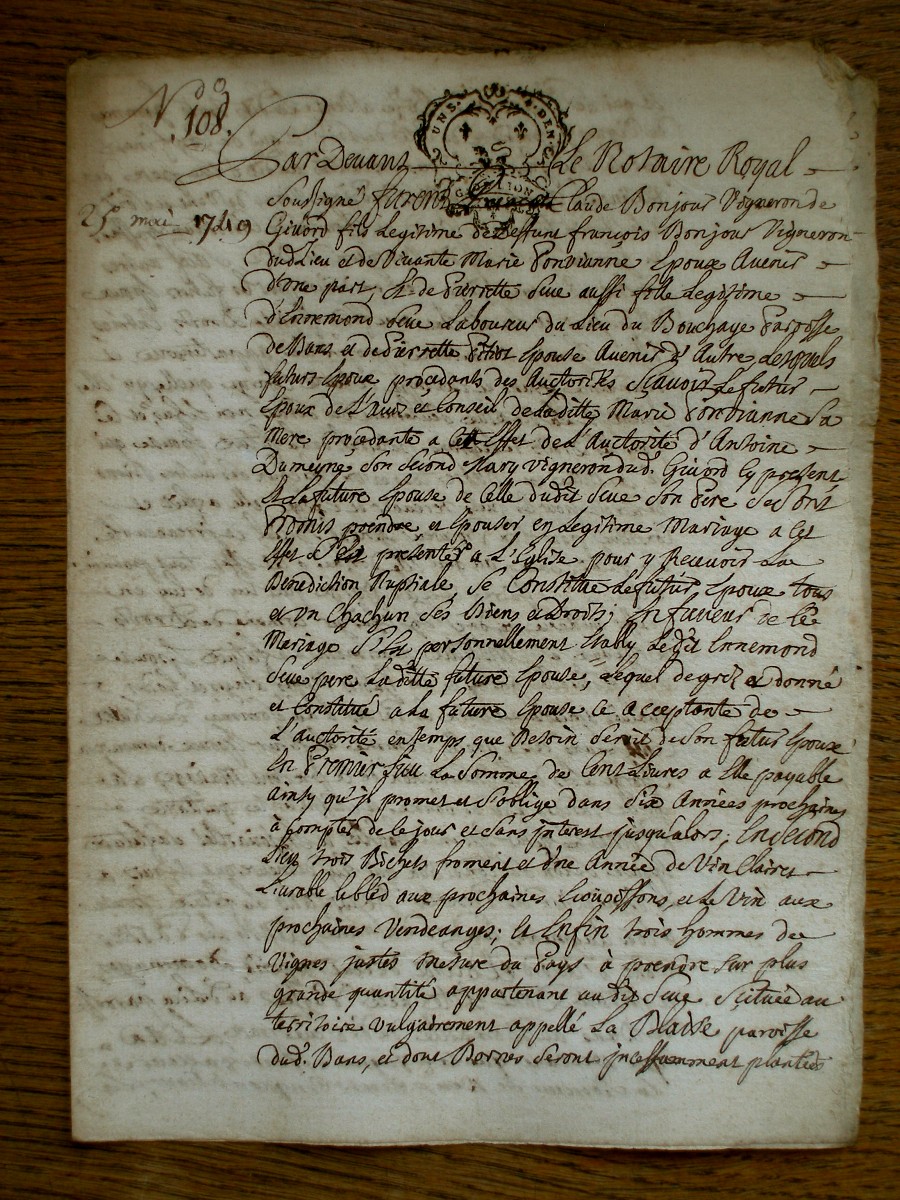 N.° 108.
UNS. DEN.
Par Devant Le Notaire Royal
25 mai 1749
Soussigné furent Claude Bonjour Vigneron de
Givord fils Legitime de Deffunt françois Bonjour Vigneron
dud Lieu et de Vivante Marie Epoux Avenir
d'Une part, Et de Pierrette Seve aussi fille Legitime
d'Ennemond Seve Laboureur du Lieu du Bouchage Paroisse
de Bans, et de Pierrette Epouse Avenir d'Autre, Lesquels
futurs Epoux procedants des Auctorités Scavoir Le futur
Epoux de L'avis et Conseil de Laditte Marie sa
Mere procedante a Cet Effet de L'Auctorité d'Antoine
Dumeyne son second Mary vigneron dud. Givord Cy present
Et La future Epouse de Celle dudit Seve son Pere se sont
Promis prendre et Epouser en Legitime Mariage a Cet
Effet se presenter a L'Eglise pour y Recevoir La
Benediction Nuptiale, se Constitue Le futur Epoux tous
et Un Chachun ses Biens et Droits; En faveur de Ce
Mariage s'Est personnellement Etably Ledit Ennemond
Seve pere Laditte future Epouse, Lequel de gré a donné
et Constitué a La future Epouse Ce acceptante de
L'auctorité en temps que Besoin seroit de son futur Epoux
En Premier Lieu La Somme de Cent Livres a Elle payable
ainsy qu'jl promet et s'oblige dans Six Années prochaines
à Compter de Ce jour et sans jnterest jusqu'alors; En second
Lieu trois Bichets froment et d'Une Année de Vin Clairet
Livrable le bled aux prochaines, et Le Vin aux
prochaines Vendeanges; Et Enfin trois hommes de
Vignes justes Mesure du Pays à prendre sur plus
grande quantité appartenant audit Seve Scituée au
territoire Vulgairement appellé La Blaisse paroisse
dud. Bans, et dont Bornes seront jncessemment plantées